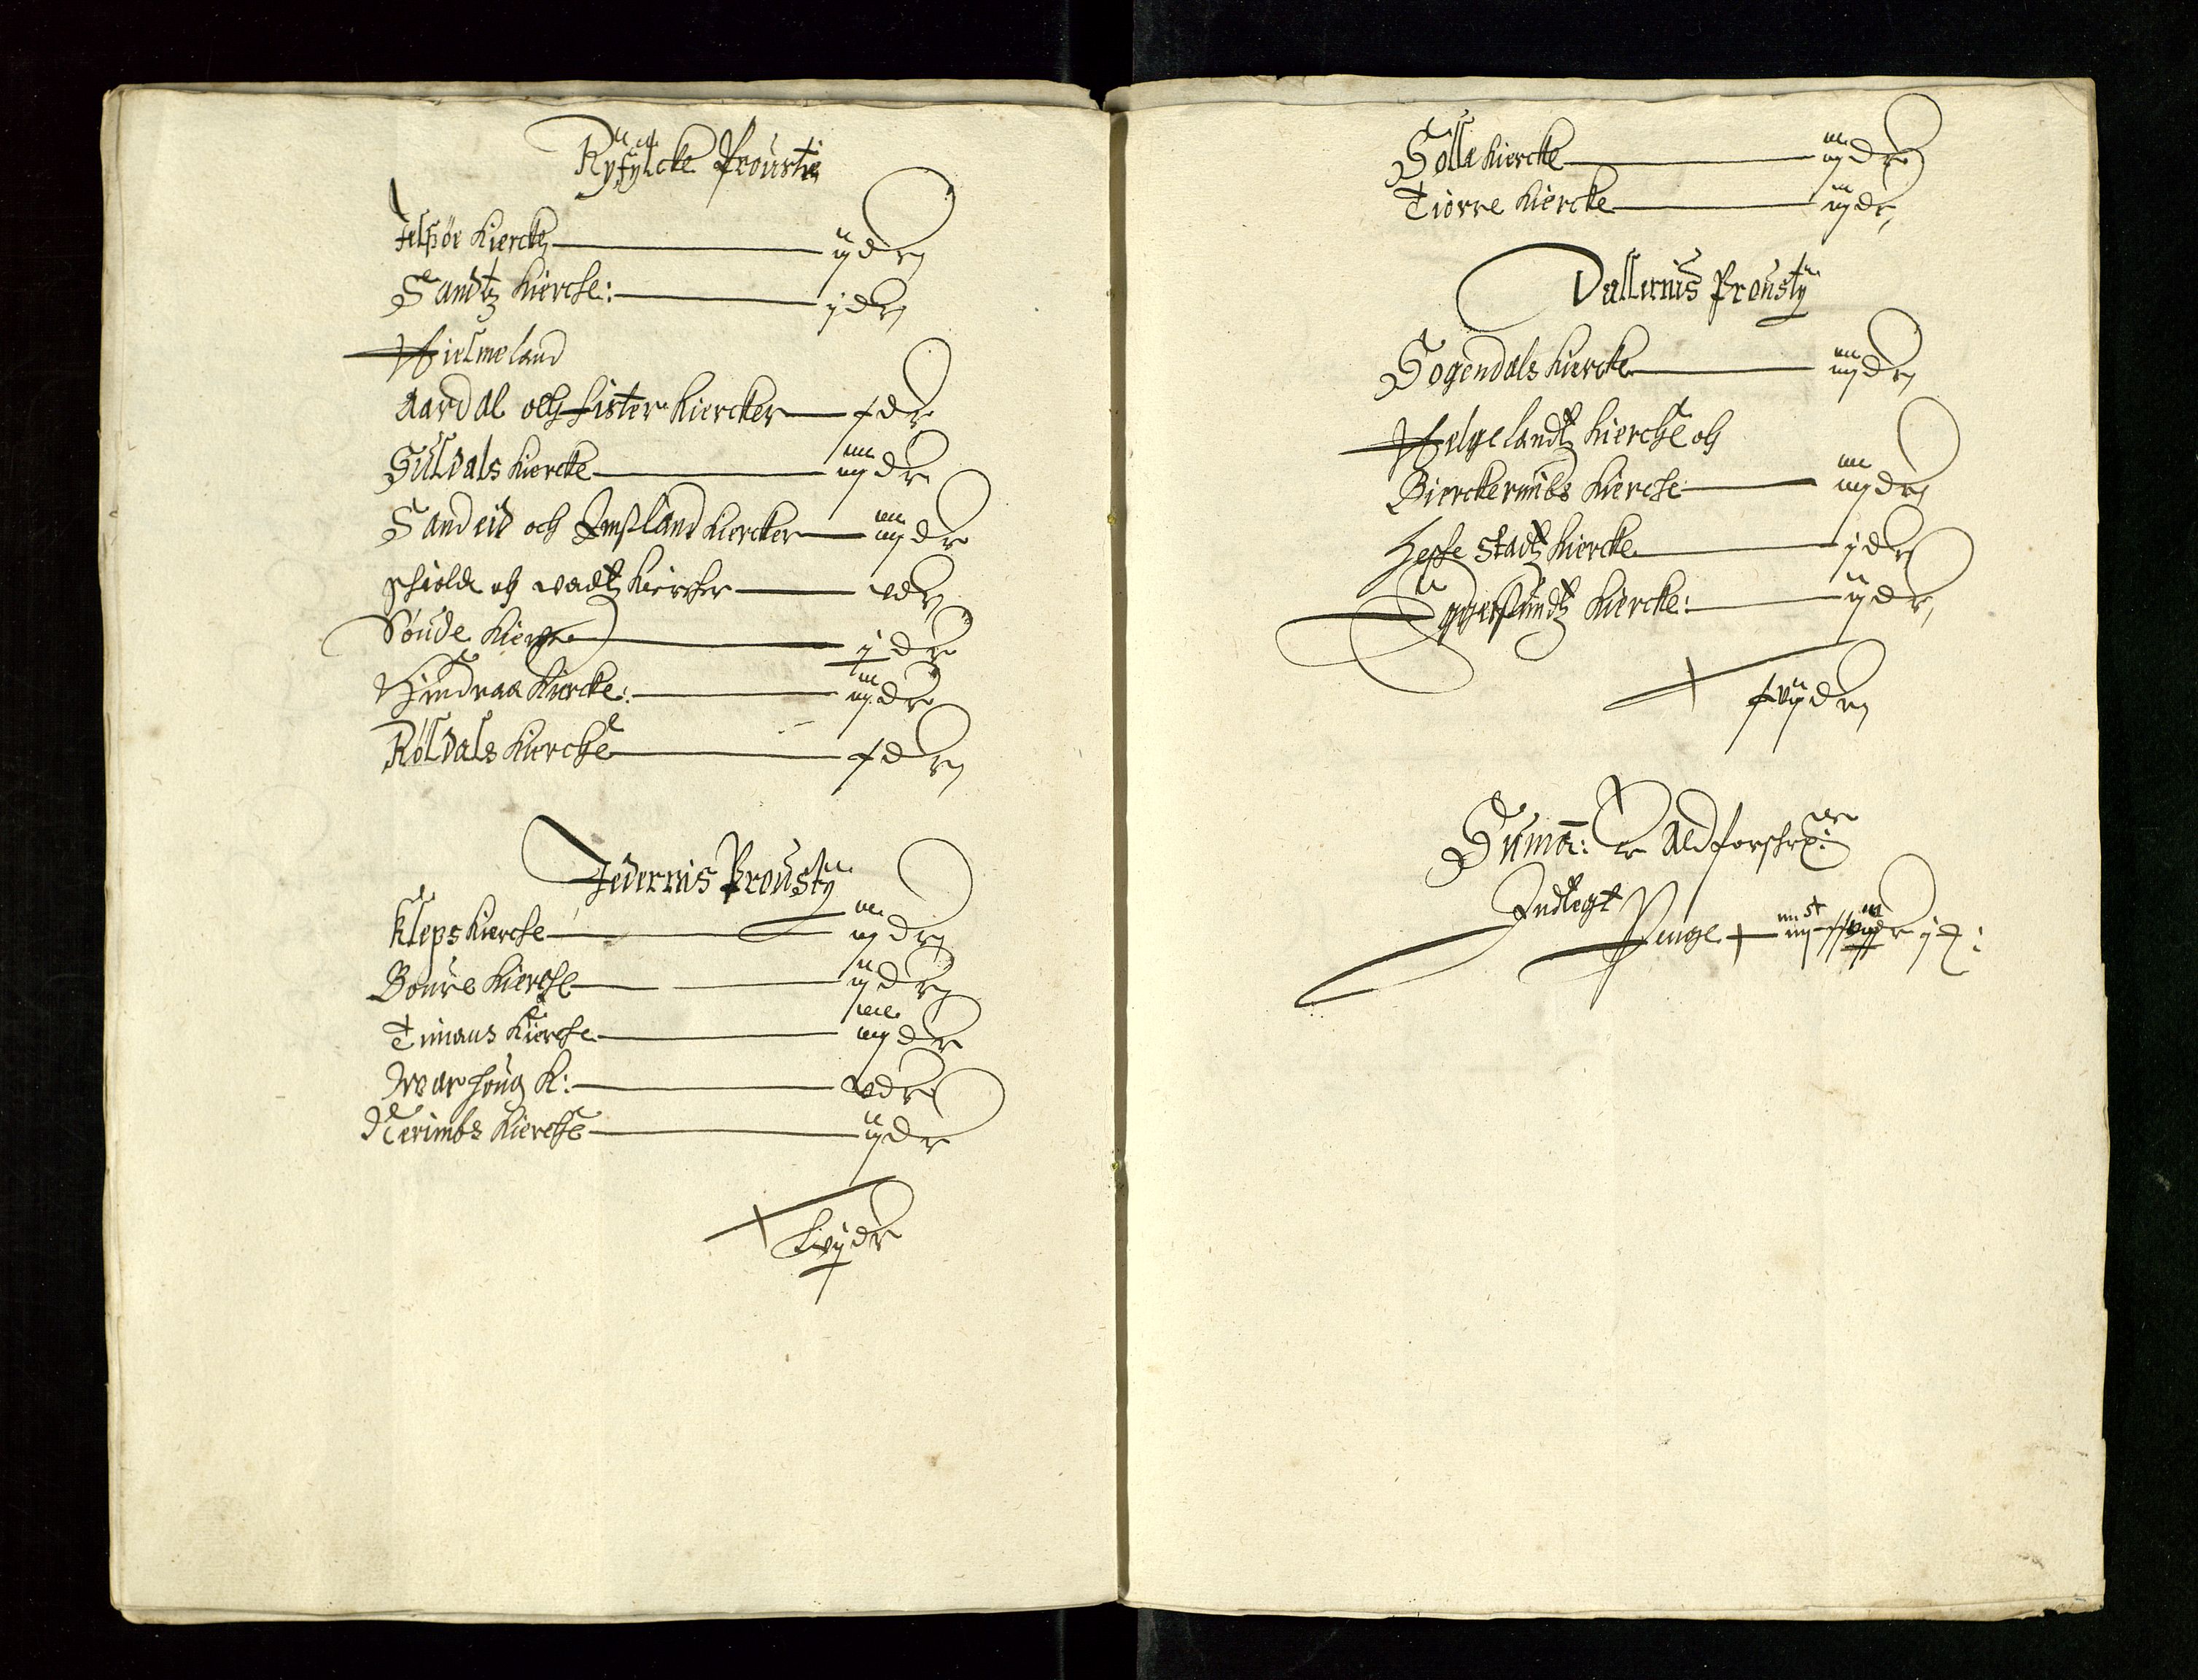 Ryfylcke Proustie
Jelsøe Kiercke ij dlr
Sandtz Kiercke: j dlr
Hielmeland
Aardal och Fister Kiercker x dlr
Suldals Kiercke iiij dlr
Sandeid och Imsland Kiercker iiij dlr
Schiold och Vadtz Kiercker v dlr
Soude Kiercke j dlr
Hindraa Kiercke: iiij dlr
Røldals Kiercke x dlr
Jedernis Prousty
Kleps Kiercke iij dlr
Boure Kiercke ij dlr
Timans Kiercke iiij dlr
Warhoug K: v dlr
Nerimbs Kiercke ij dlr
dlr
Solla Kiercke iij dlr
Tiorre Kiercke iij dlr
Dallernis Prousty
Sogendals Kiercke iiij dlr
Helgelandtz Kiercke och
Bierckermibs Kiercke iiij dlr
Heskestadtz Kiercke j dlr
Eggersundtz Kiercke: ij dlr
xvij dlr
Suma: er Ald forschr:ne
Indlegt
Penge